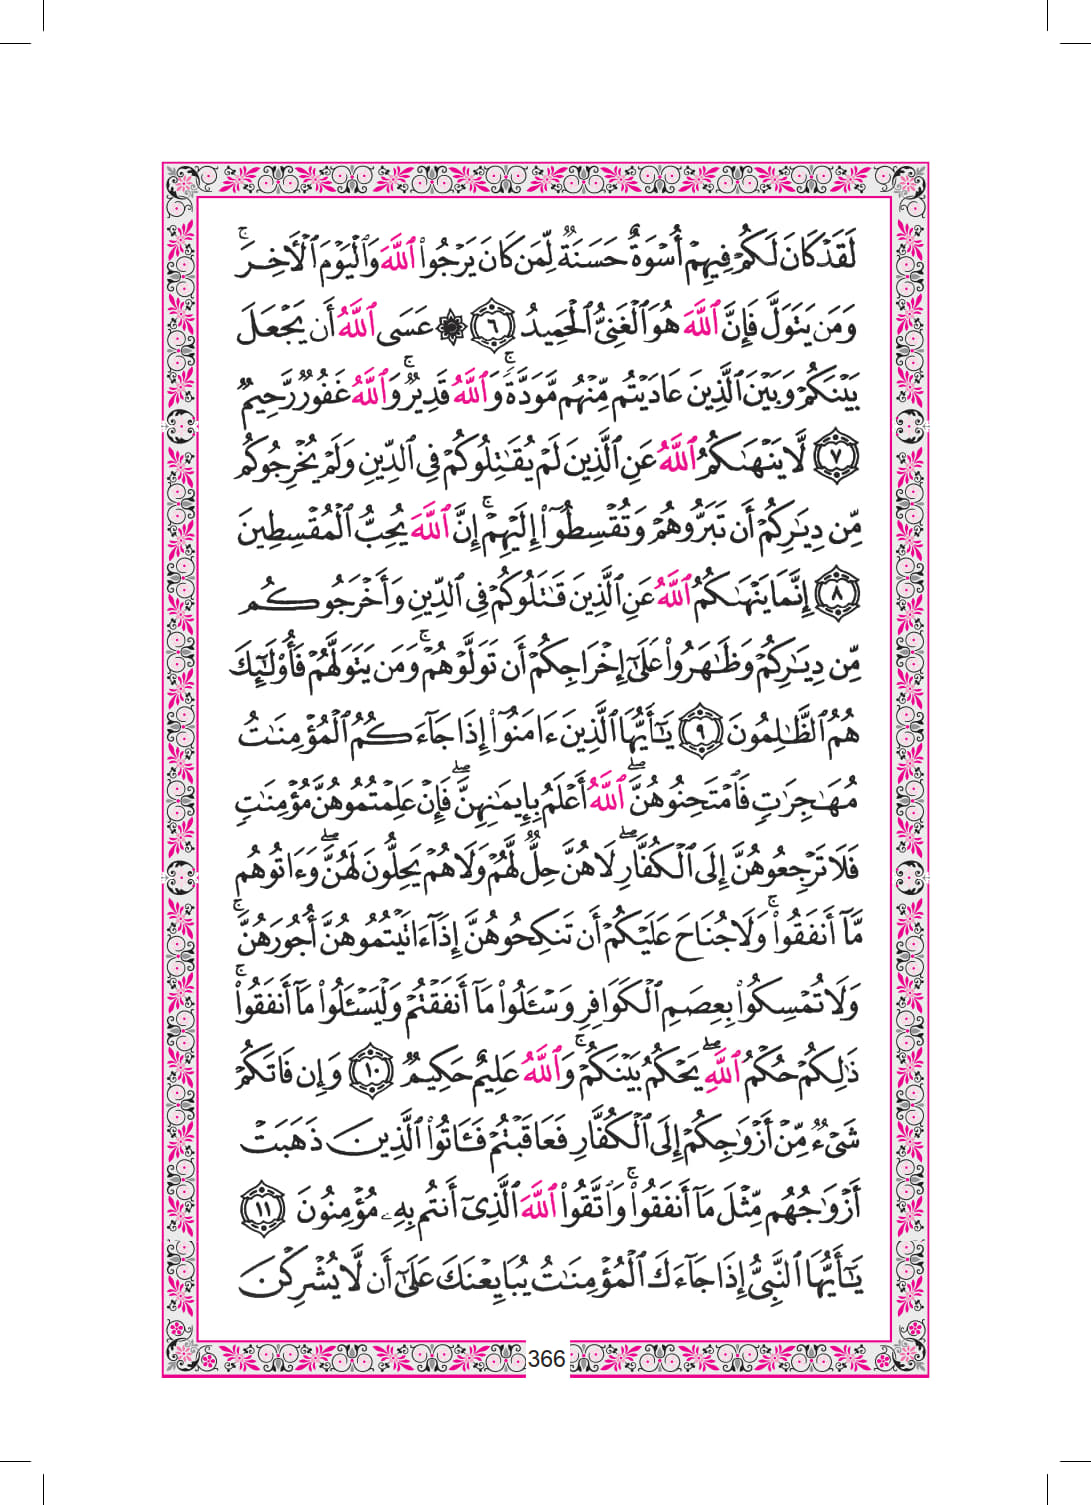 لَقَدْ كَانَ لَكُمْ فِيهِمْ أُسْوَةٌ حَسَنَةٌ لِّمَن كَانَ يَرْجُوا۟ ٱللَّهَ وَٱلْيَوْمَ ٱلْءَاخِرَ ۚ
وَمَن يَتَوَلَّ فَإِنَّ ٱللَّهَ هُوَ ٱلْغَنِىُّ ٱلْحَمِيدُ ٦ ۞ عَسَى ٱللَّهُ أَن يَجْعَلَ
بَيْنَكُمْ وَبَيْنَ ٱلَّذِينَ عَادَيْتُم مِّنْهُم مَّوَدَّةً ۚ وَٱللَّهُ قَدِيرٌ ۚ وَٱللَّهُ غَفُورٌ رَّحِيمٌ
٧ لَّا يَنْهَىٰكُمُ ٱللَّهُ عَنِ ٱلَّذِينَ لَمْ يُقَـٰتِلُوكُمْ فِى ٱلدِّينِ وَلَمْ يُخْرِجُوكُم
مِّن دِيَـٰرِكُمْ أَن تَبَرُّوهُمْ وَتُقْسِطُوٓا۟ إِلَيْهِمْ ۚ إِنَّ ٱللَّهَ يُحِبُّ ٱلْمُقْسِطِينَ
٨ إِنَّمَا يَنْهَىٰكُمُ ٱللَّهُ عَنِ ٱلَّذِينَ قَـٰتَلُوكُمْ فِى ٱلدِّينِ وَأَخْرَجُوكُم
مِّن دِيَـٰرِكُمْ وَظَـٰهَرُوا۟ عَلَىٰٓ إِخْرَاجِكُمْ أَن تَوَلَّوْهُمْ ۚ وَمَن يَتَوَلَّهُمْ فَأُو۟لَـٰٓئِكَ
هُمُ ٱلظَّـٰلِمُونَ ٩ يَـٰٓأَيُّهَا ٱلَّذِينَ ءَامَنُوٓا۟ إِذَا جَآءَكُمُ ٱلْمُؤْمِنَـٰتُ
مُهَـٰجِرَٰتٍ فَٱمْتَحِنُوهُنَّ ۖ ٱللَّهُ أَعْلَمُ بِإِيمَـٰنِهِنَّ ۖ فَإِنْ عَلِمْتُمُوهُنَّ مُؤْمِنَـٰتٍ
فَلَا تَرْجِعُوهُنَّ إِلَى ٱلْكُفَّارِ ۖ لَا هُنَّ حِلٌّ لَّهُمْ وَلَا هُمْ يَحِلُّونَ لَهُنَّ ۖ وَءَاتُوهُم
مَّآ أَنفَقُوا۟ ۚ وَلَا جُنَاحَ عَلَيْكُمْ أَن تَنكِحُوهُنَّ إِذَآ ءَاتَيْتُمُوهُنَّ أُجُورَهُنَّ ۚ
وَلَا تُمْسِكُوا۟ بِعِصَمِ ٱلْكَوَافِرِ وَسْـَٔلُوا۟ مَآ أَنفَقْتُمْ وَلْيَسْـَٔلُوا۟ مَآ أَنفَقُوا۟ ۚ
ذَٰلِكُمْ حُكْمُ ٱللَّهِ ۖ يَحْكُمُ بَيْنَكُمْ ۚ وَٱللَّهُ عَلِيمٌ حَكِيمٌ ١٠ وَإِن فَاتَكُمْ
شَىْءٌ مِّنْ أَزْوَٰجِكُمْ إِلَى ٱلْكُفَّارِ فَعَاقَبْتُمْ فَـَٔاتُوا۟ ٱلَّذِينَ ذَهَبَتْ
أَزْوَٰجُهُم مِّثْلَ مَآ أَنفَقُوا۟ ۚ وَٱتَّقُوا۟ ٱللَّهَ ٱلَّذِىٓ أَنتُم بِهِۦ مُؤْمِنُونَ ١١
يَـٰٓأَيُّهَا ٱلنَّبِىُّ إِذَا جَآءَكَ ٱلْمُؤْمِنَـٰتُ يُبَايِعْنَكَ عَلَىٰٓ أَن لَّا يُشْرِكْنَ
366